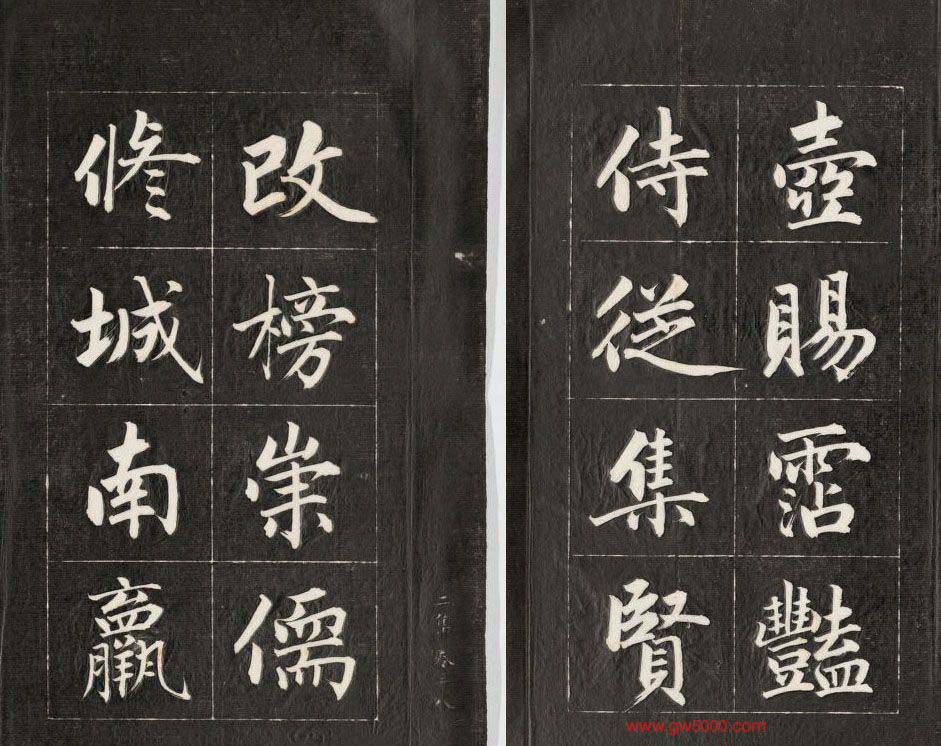 壺賜霑豔
侍從集賢
改榜崇儒
修城南
二集
www.gw5000.com